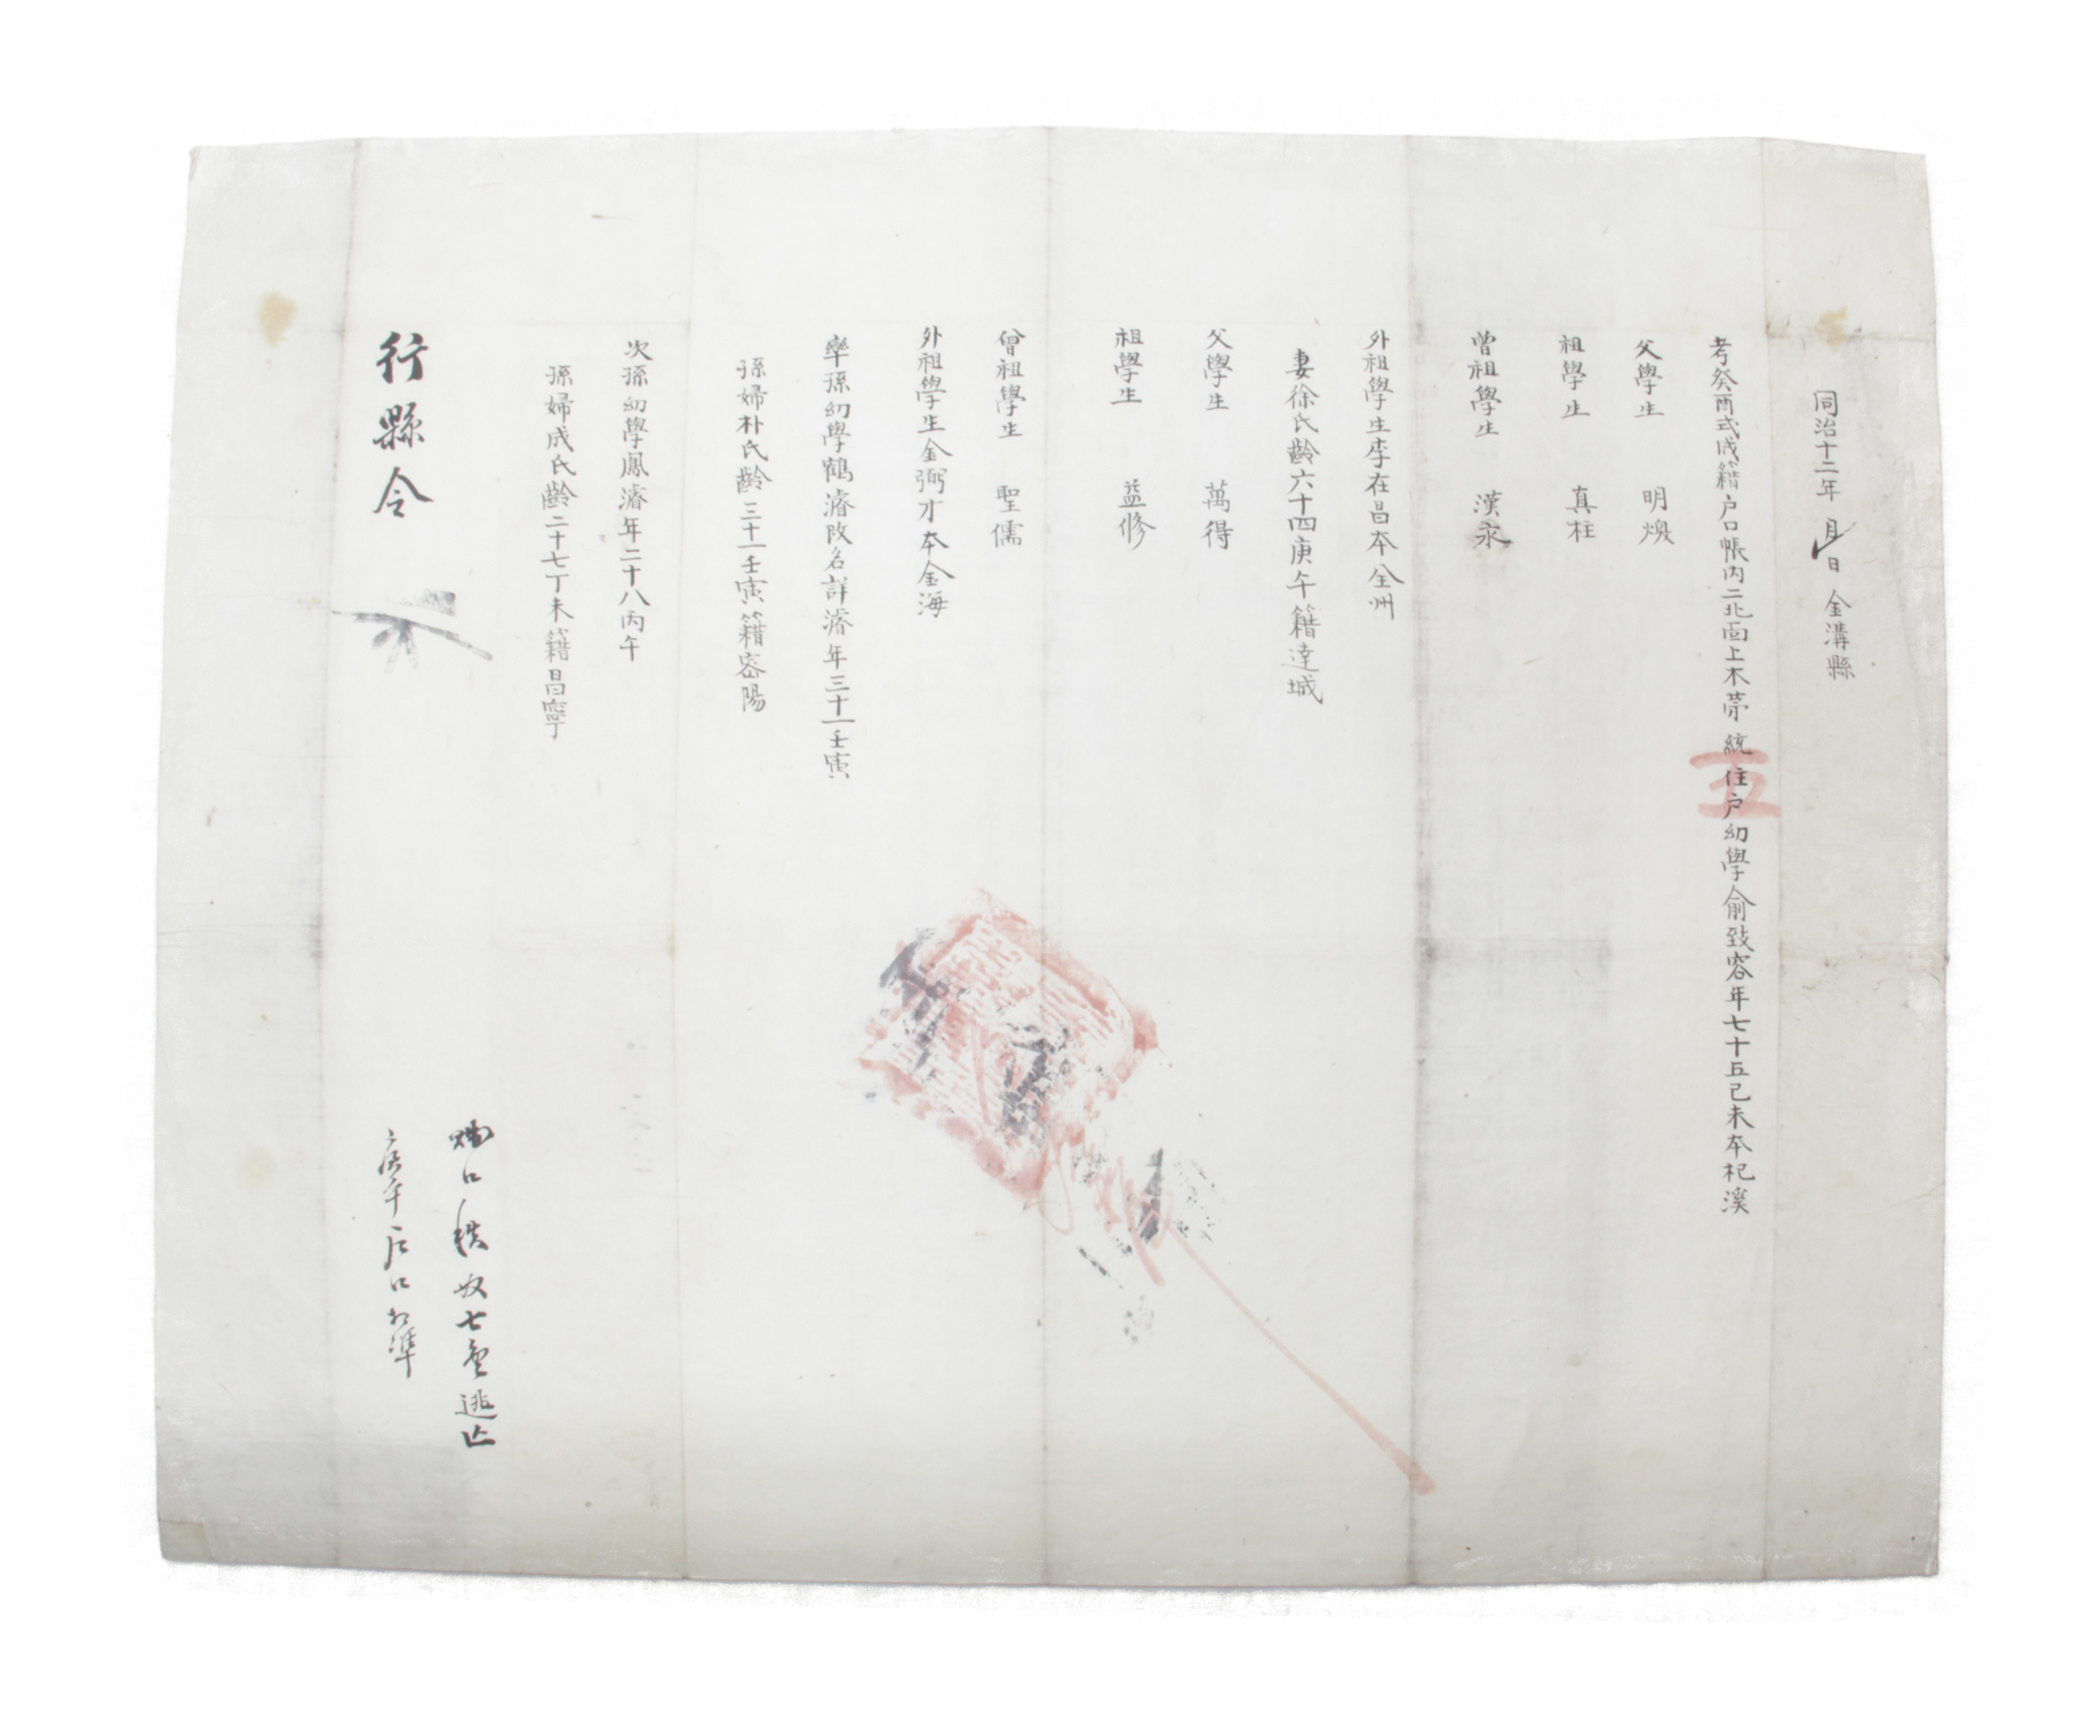 同治十二年 月 日 金溝縣
考癸酉式成籍戶口帳內二北面上木茅 統 住戶幼學俞致容年七十五己未本杞溪
五
父學生 明煥
祖學生 真柱
曾祖學生 漢永
外祖學生李在昌本全州
妻徐氏齡六十四庚午籍達城
父學生 萬得
祖學生 益修
曾祖學生 聖儒
外祖學生金弼才本金海
率孫幼學鶴濬改名詳濬年三十一壬寅
孫婦朴氏齡三十一壬寅籍密陽
次孫幼學鳳濬年二十八丙午
孫婦成氏齡二十七丁未籍昌寧
口秩奴七 逃亡
庚午戶口相準
行縣令